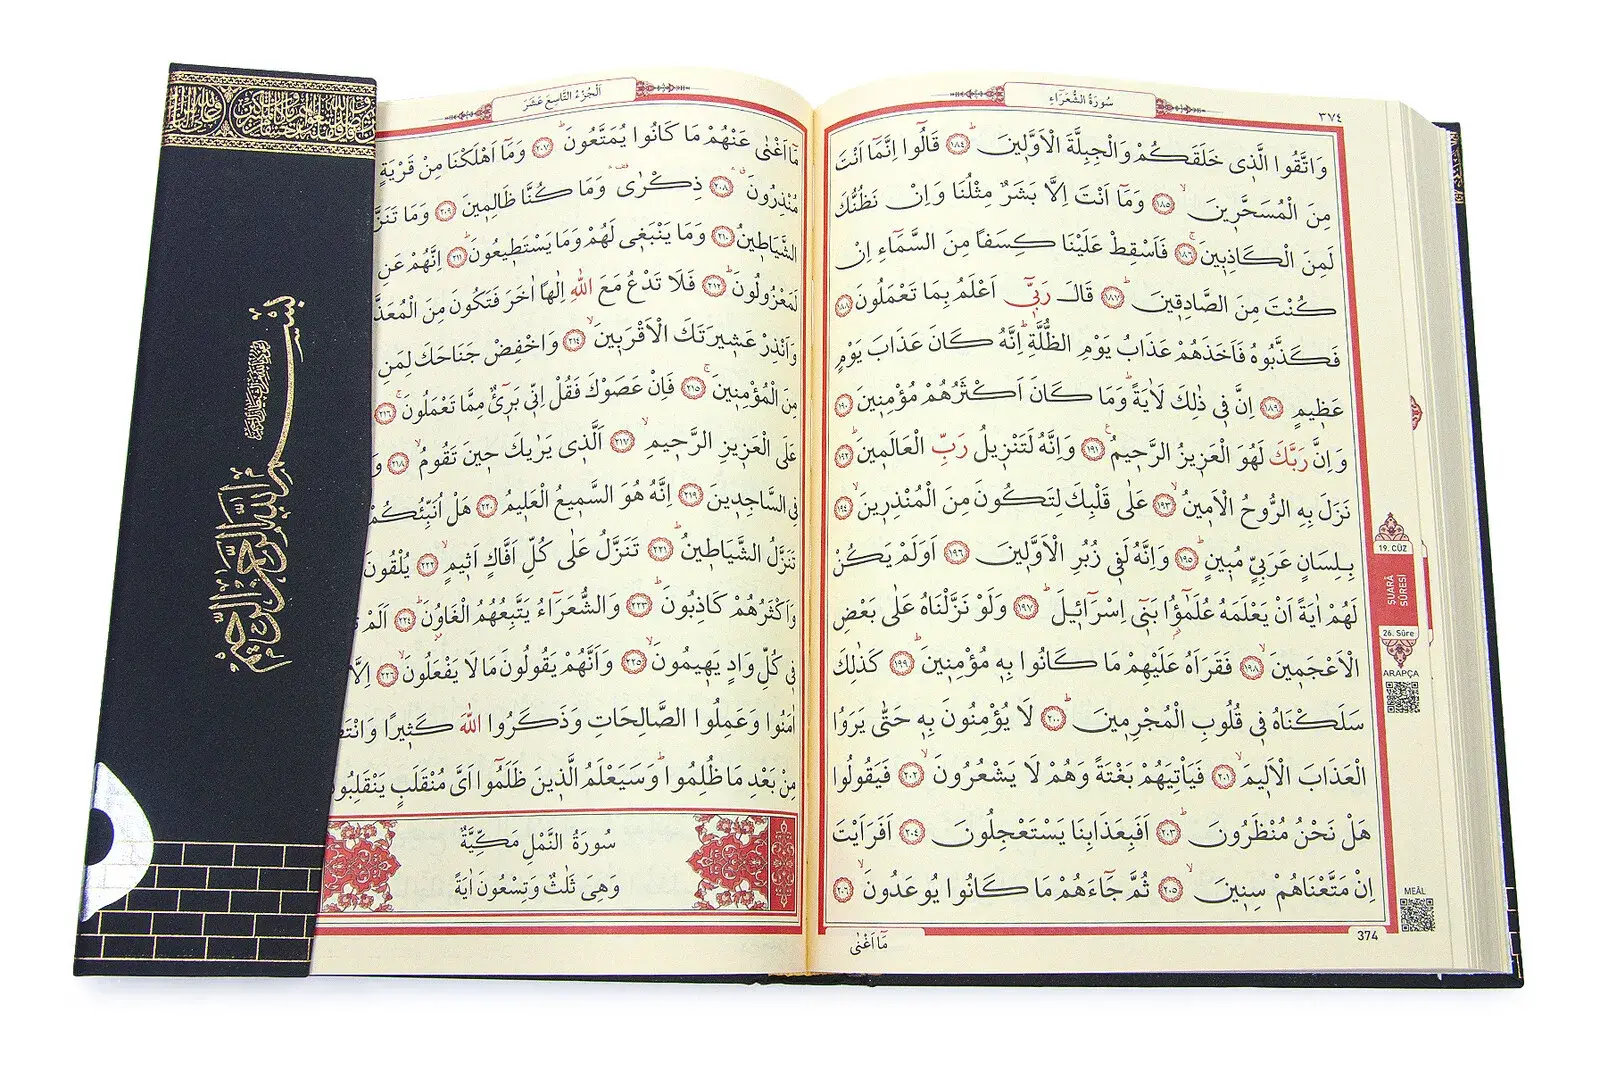 ٣٧٤
سُورَةُ الشُّعَرَاءِ
وَاتَّقُوا الَّذ۪ي خَلَقَكُمْ وَالْجِبِلَّةَ الْاَوَّل۪ينَۜ ﴿١٨٤﴾ قَالُٓوا اِنَّمَٓا اَنْتَ
مِنَ الْمُسَحَّر۪ينَۙ ﴿١٨٥﴾ وَمَٓا اَنْتَ اِلَّا بَشَرٌ مِثْلُنَا وَاِنْ نَظُنُّكَ
لَمِنَ الْكَاذِب۪ينَۚ ﴿١٨٦﴾ فَاَسْقِطْ عَلَيْنَا كِسَفًا مِنَ السَّمَٓاءِ اِنْ
كُنْتَ مِنَ الصَّادِق۪ينَۜ ﴿١٨٧﴾ قَالَ رَبّ۪ٓي اَعْلَمُ بِمَا تَعْمَلُونَ ﴿١٨٨﴾
فَكَذَّبُوهُ فَاَخَذَهُمْ عَذَابُ يَوْمِ الظُّلَّةِۜ اِنَّهُ كَانَ عَذَابَ يَوْمٍ
عَظ۪يمٍ ﴿١٨٩﴾ اِنَّ ف۪ي ذٰلِكَ لَاٰيَةًۜ وَمَا كَانَ اَكْثَرُهُمْ مُؤْمِن۪ينَ ﴿١٩٠﴾
وَاِنَّ رَبَّكَ لَهُوَ الْعَز۪يزُ الرَّح۪يمُ۟ ﴿١٩١﴾ وَاِنَّهُ لَتَنْز۪يلُ رَبِّ الْعَالَم۪ينَۜ ﴿١٩٢﴾
نَزَلَ بِهِ الرُّوحُ الْاَم۪ينُۙ ﴿١٩٣﴾ عَلٰى قَلْبِكَ لِتَكُونَ مِنَ الْمُنْذِر۪ينَۙ ﴿١٩٤﴾
بِلِسَانٍ عَرَبِيٍّ مُب۪ينٍۜ ﴿١٩٥﴾ وَاِنَّهُ لَف۪ي زُبُرِ الْاَوَّل۪ينَ ﴿١٩٦﴾ اَوَلَمْ يَكُنْ
لَهُمْ اٰيَةً اَنْ يَعْلَمَهُ عُلَمٰٓؤُ۬ا بَن۪ٓي اِسْرَٓائ۪لَۜ ﴿١٩٧﴾ وَلَوْ نَزَّلْنَاهُ عَلٰى بَعْضِ
الْاَعْجَم۪ينَۙ ﴿١٩٨﴾ فَقَرَاَهُ عَلَيْهِمْ مَا كَانُوا بِه۪ مُؤْمِن۪ينَۜ ﴿١٩٩﴾ كَذٰلِكَ
سَلَكْنَاهُ ف۪ي قُلُوبِ الْمُجْرِم۪ينَۜ ﴿٢٠٠﴾ لَا يُؤْمِنُونَ بِه۪ حَتّٰى يَرَوُا
الْعَذَابَ الْاَل۪يمَۙ ﴿٢٠١﴾ فَيَأْتِيَهُمْ بَغْتَةً وَهُمْ لَا يَشْعُرُونَۙ ﴿٢٠٢﴾ فَيَقُولُوا
هَلْ نَحْنُ مُنْظَرُونَۜ ﴿٢٠٣﴾ اَفَبِعَذَابِنَا يَسْتَعْجِلُونَ ﴿٢٠٤﴾ اَفَرَاَيْتَ
اِنْ مَتَّعْنَاهُمْ سِن۪ينَۙ ﴿٢٠٥﴾ ثُمَّ جَٓاءَهُمْ مَا كَانُوا يُوعَدُونَۙ ﴿٢٠٦﴾
374
مَٓا اَغْنٰى
19. CÜZ
ŞUARÂ
SÛRESİ
26. Sûre
ARAPÇA
MEÂL
اَلْجُزْءُ التَّاسِعَ عَشَرَ
مَٓا اَغْنٰى عَنْهُمْ مَا كَانُوا يُمَتَّعُونَۜ ﴿٢٠٧﴾ وَمَٓا اَهْلَكْنَا مِنْ قَرْيَةٍ
مُنْذِرُونَۗ ﴿٢٠٨﴾ ذِكْرٰى وَمَا كُنَّا ظَالِم۪ينَ ﴿٢٠٩﴾ وَمَا تَنَزَّ
الشَّيَاط۪ينُ ﴿٢١٠﴾ وَمَا يَنْبَغ۪ي لَهُمْ وَمَا يَسْتَط۪يعُونَۜ ﴿٢١١﴾ اِنَّهُمْ عَنِ
لَمَعْزُولُونَۜ ﴿٢١٢﴾ فَلَا تَدْعُ مَعَ اللّٰهِ اِلٰهًا اٰخَرَ فَتَكُونَ مِنَ الْمُعَذَّ
وَاَنْذِرْ عَش۪يرَتَكَ الْاَقْرَب۪ينَۙ ﴿٢١٤﴾ وَاخْفِضْ جَنَاحَكَ لِمَنِ
مِنَ الْمُؤْمِن۪ينَۚ ﴿٢١٥﴾ فَاِنْ عَصَوْكَ فَقُلْ اِنّ۪ي بَر۪ٓيءٌ مِمَّا تَعْمَلُونَۚ ﴿٢١٦﴾
عَلَى الْعَز۪يزِ الرَّح۪يمِۙ ﴿٢١٧﴾ اَلَّذ۪ي يَرٰيكَ ح۪ينَ تَقُومُۙ ﴿٢١٨﴾ وَ
فِي السَّاجِد۪ينَ ﴿٢١٩﴾ اِنَّهُ هُوَ السَّم۪يعُ الْعَل۪يمُ ﴿٢٢٠﴾ هَلْ اُنَبِّئُكُمْ
تَنَزَّلُ الشَّيَاط۪ينُۜ ﴿٢٢١﴾ تَنَزَّلُ عَلٰى كُلِّ اَفَّاكٍ اَث۪يمٍۙ ﴿٢٢٢﴾ يُلْقُونَ
وَاَكْثَرُهُمْ كَاذِبُونَۜ ﴿٢٢٣﴾ وَالشُّعَرَٓاءُ يَتَّبِعُهُمُ الْغَاوُ۫نَۜ ﴿٢٢٤﴾ اَلَمْ
ف۪ي كُلِّ وَادٍ يَه۪يمُونَۙ ﴿٢٢٥﴾ وَاَنَّهُمْ يَقُولُونَ مَا لَا يَفْعَلُونَۙ ﴿٢٢٦﴾ اِلَّا
اٰمَنُوا وَعَمِلُوا الصَّالِحَاتِ وَذَكَرُوا اللّٰهَ كَث۪يرًا وَانْتَ
مِنْ بَعْدِ مَا ظُلِمُواۜ وَسَيَعْلَمُ الَّذ۪ينَ ظَلَمُٓوا اَيَّ مُنْقَلَبٍ يَنْقَلِبُو
سُورَةُ النَّمْلِ مَكِّيَّةٌ
وَهِيَ ثَلٰثٌ وَتِسْعُونَ اٰيَةً
بسم الله الرحمن الرحيم